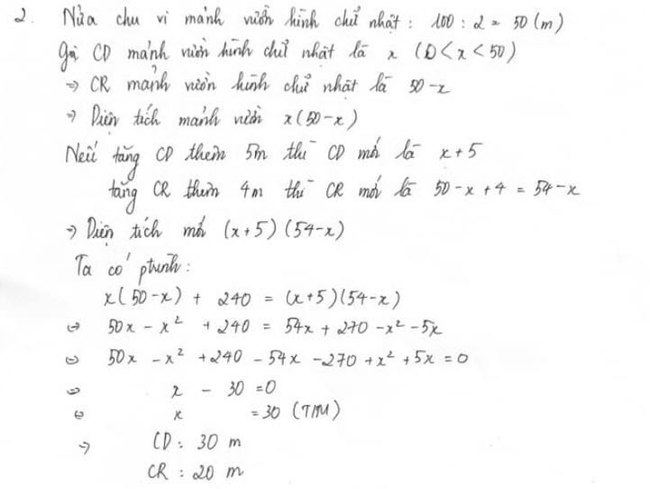 2. Nửa chu vi mảnh vườn hình chữ nhật: 100 : 2 = 50 (m)
Gọi CD mảnh vườn hình chữ nhật là x (0 < x < 50)
⇒ CR mảnh vườn hình chữ nhật là 50-x
⇒ Diện tích mảnh vườn x(50-x)
Nếu tăng CD thêm 5m thì CD mới là x+5
tăng CR thêm 4m thì CR mới là 50-x+4 = 54-x
⇒ Diện tích mới (x+5)(54-x)
Ta có ptrình:
x(50-x) + 240 = (x+5)(54-x)
⇔ 50x - x² + 240 = 54x + 270 - x² - 5x
⇔ 50x - x² + 240 - 54x - 270 + x² + 5x = 0
⇔ x - 30 = 0
⇔ x = 30 (T/M)
⇒ CD: 30 m
CR: 20 m